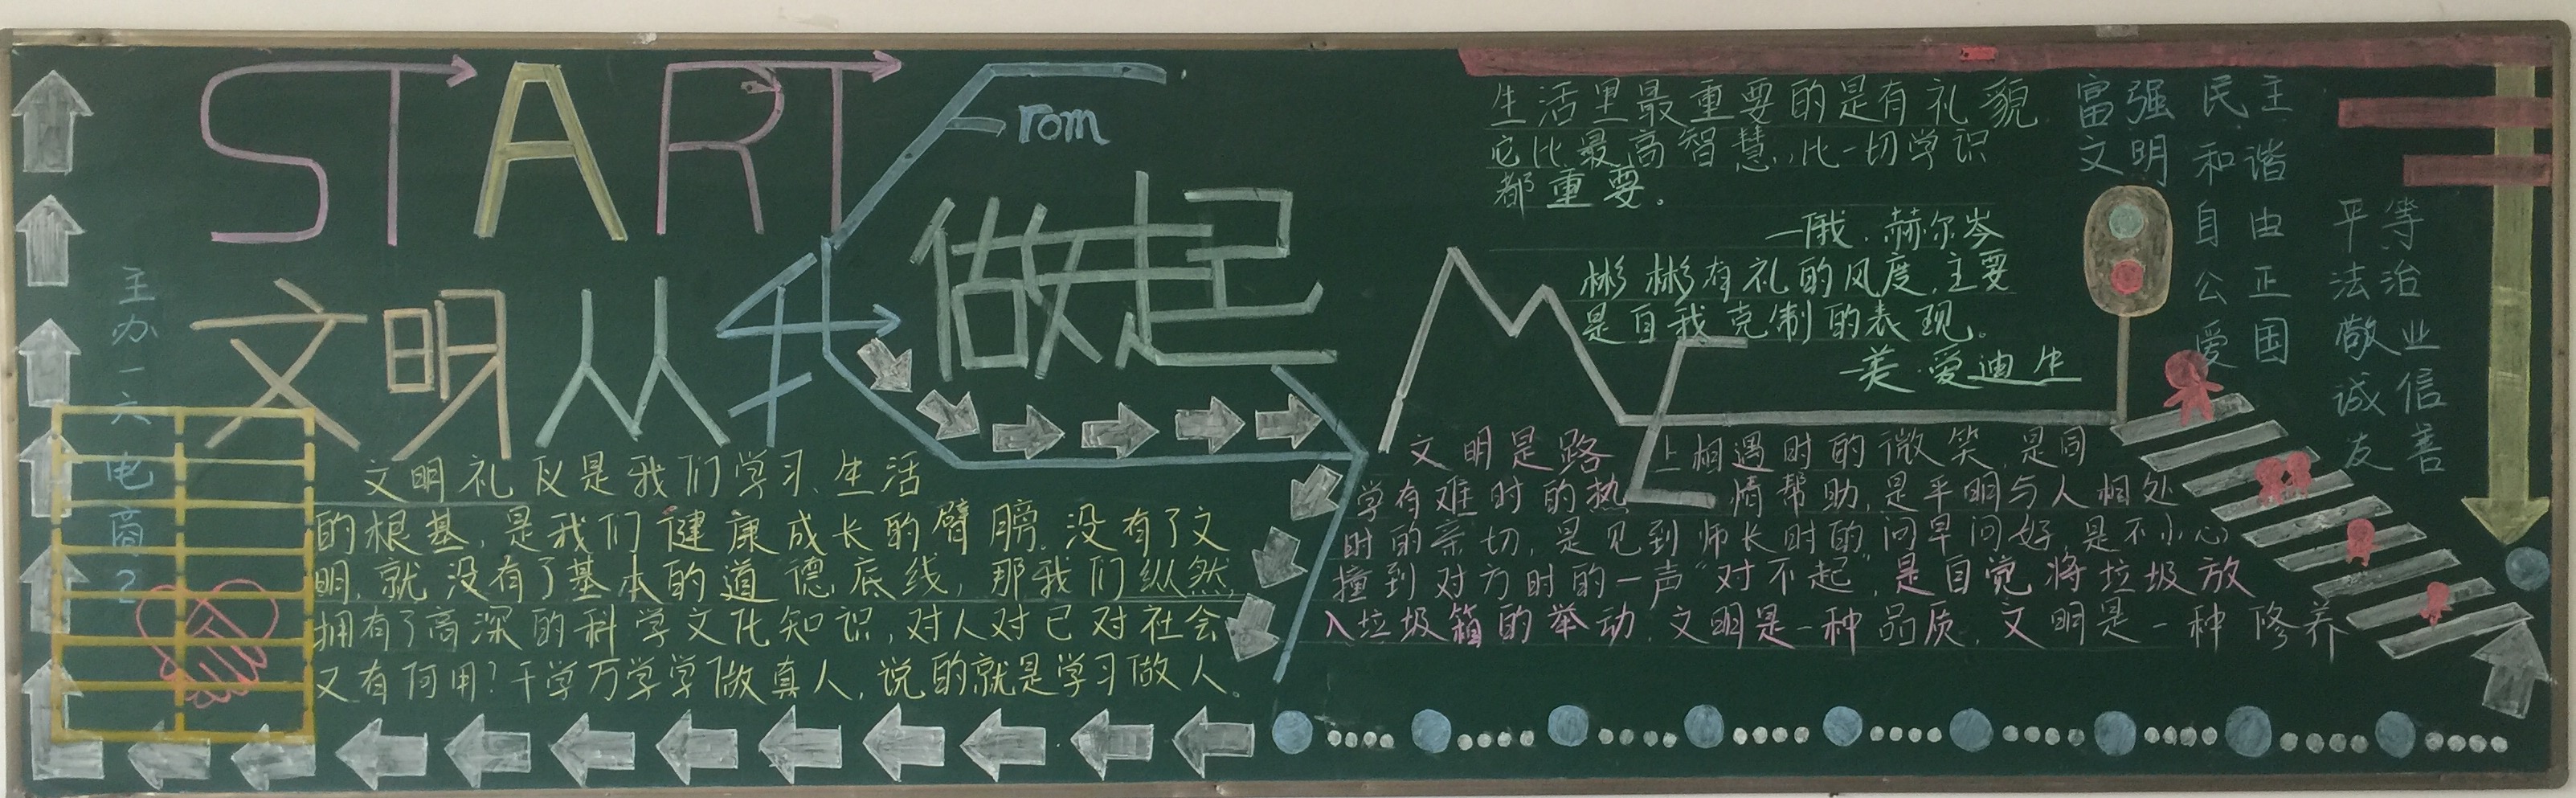 START From ME
文明从我做起
主办一六电商2
文明礼仪是我们学习、生活
的根基,是我们健康成长的臂膀.没有了文
明,就没有了基本的道德底线,那我们纵然
拥有了高深的科学文化知识,对人对已对社会
又有何用?千学万学学做真人,说的就是学习做人。
生活里最重要的是有礼貌
它比最高智慧,比一切学识
都重要。
一俄.赫尔岑
彬彬有礼的风度,主要
是自我克制的表现。
一美·爱迪生
文明是路上相遇时的微笑,是同
学有难时的热情帮助,是平明与人相处
时的亲切,是见到师长时的问早问好,是不小心
撞到对方时的一声“对不起”,是自觉将垃圾放
入垃圾箱的举动.文明是一种品质,文明是一种修养
富强 民主
文明 和谐
自由 平等
公正 法治
爱国 敬业
诚信
友善